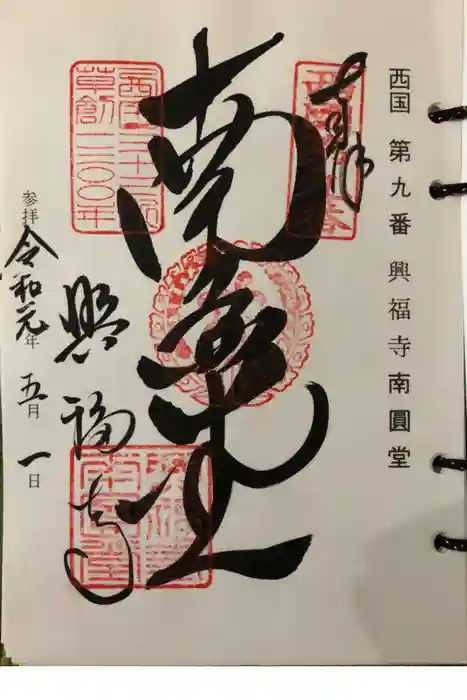 西国 第九番 興福寺南圓堂
奉拝
西国三十三所
草創一三〇〇年
南無堂
興福寺
参拝 令和元年 五月 一日